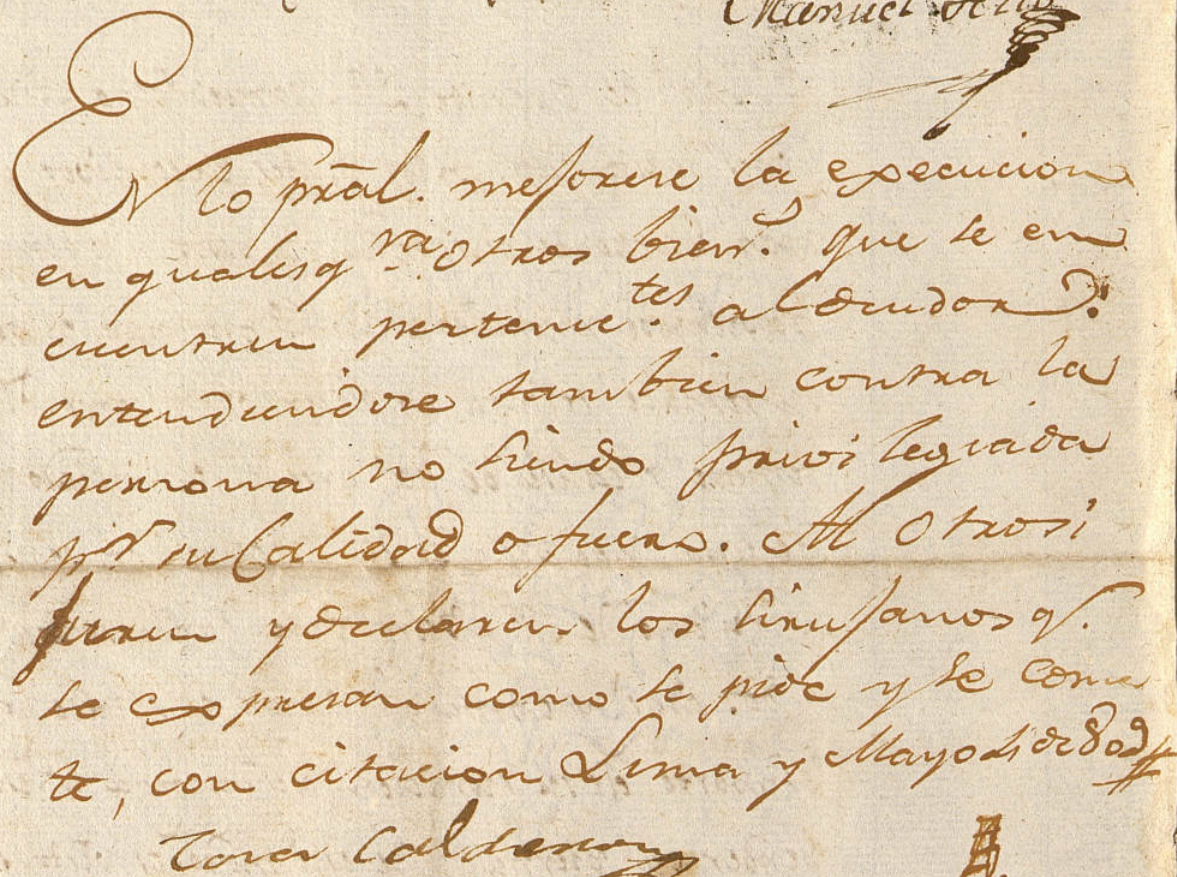 Manuel
En lo pral. mejorese la execucion
en qualesqra otros biens. que se en
cuentren pertenectes. al deudor
entendiendose tambien contra la
persona no siendo privilegiada
pr. su Calidad o fuero. Al Otrosi
juren y declaren los Sirujanos q.
se expresan como se pide y se come
te, con citacion Lima y Mayo de 809
Calderon